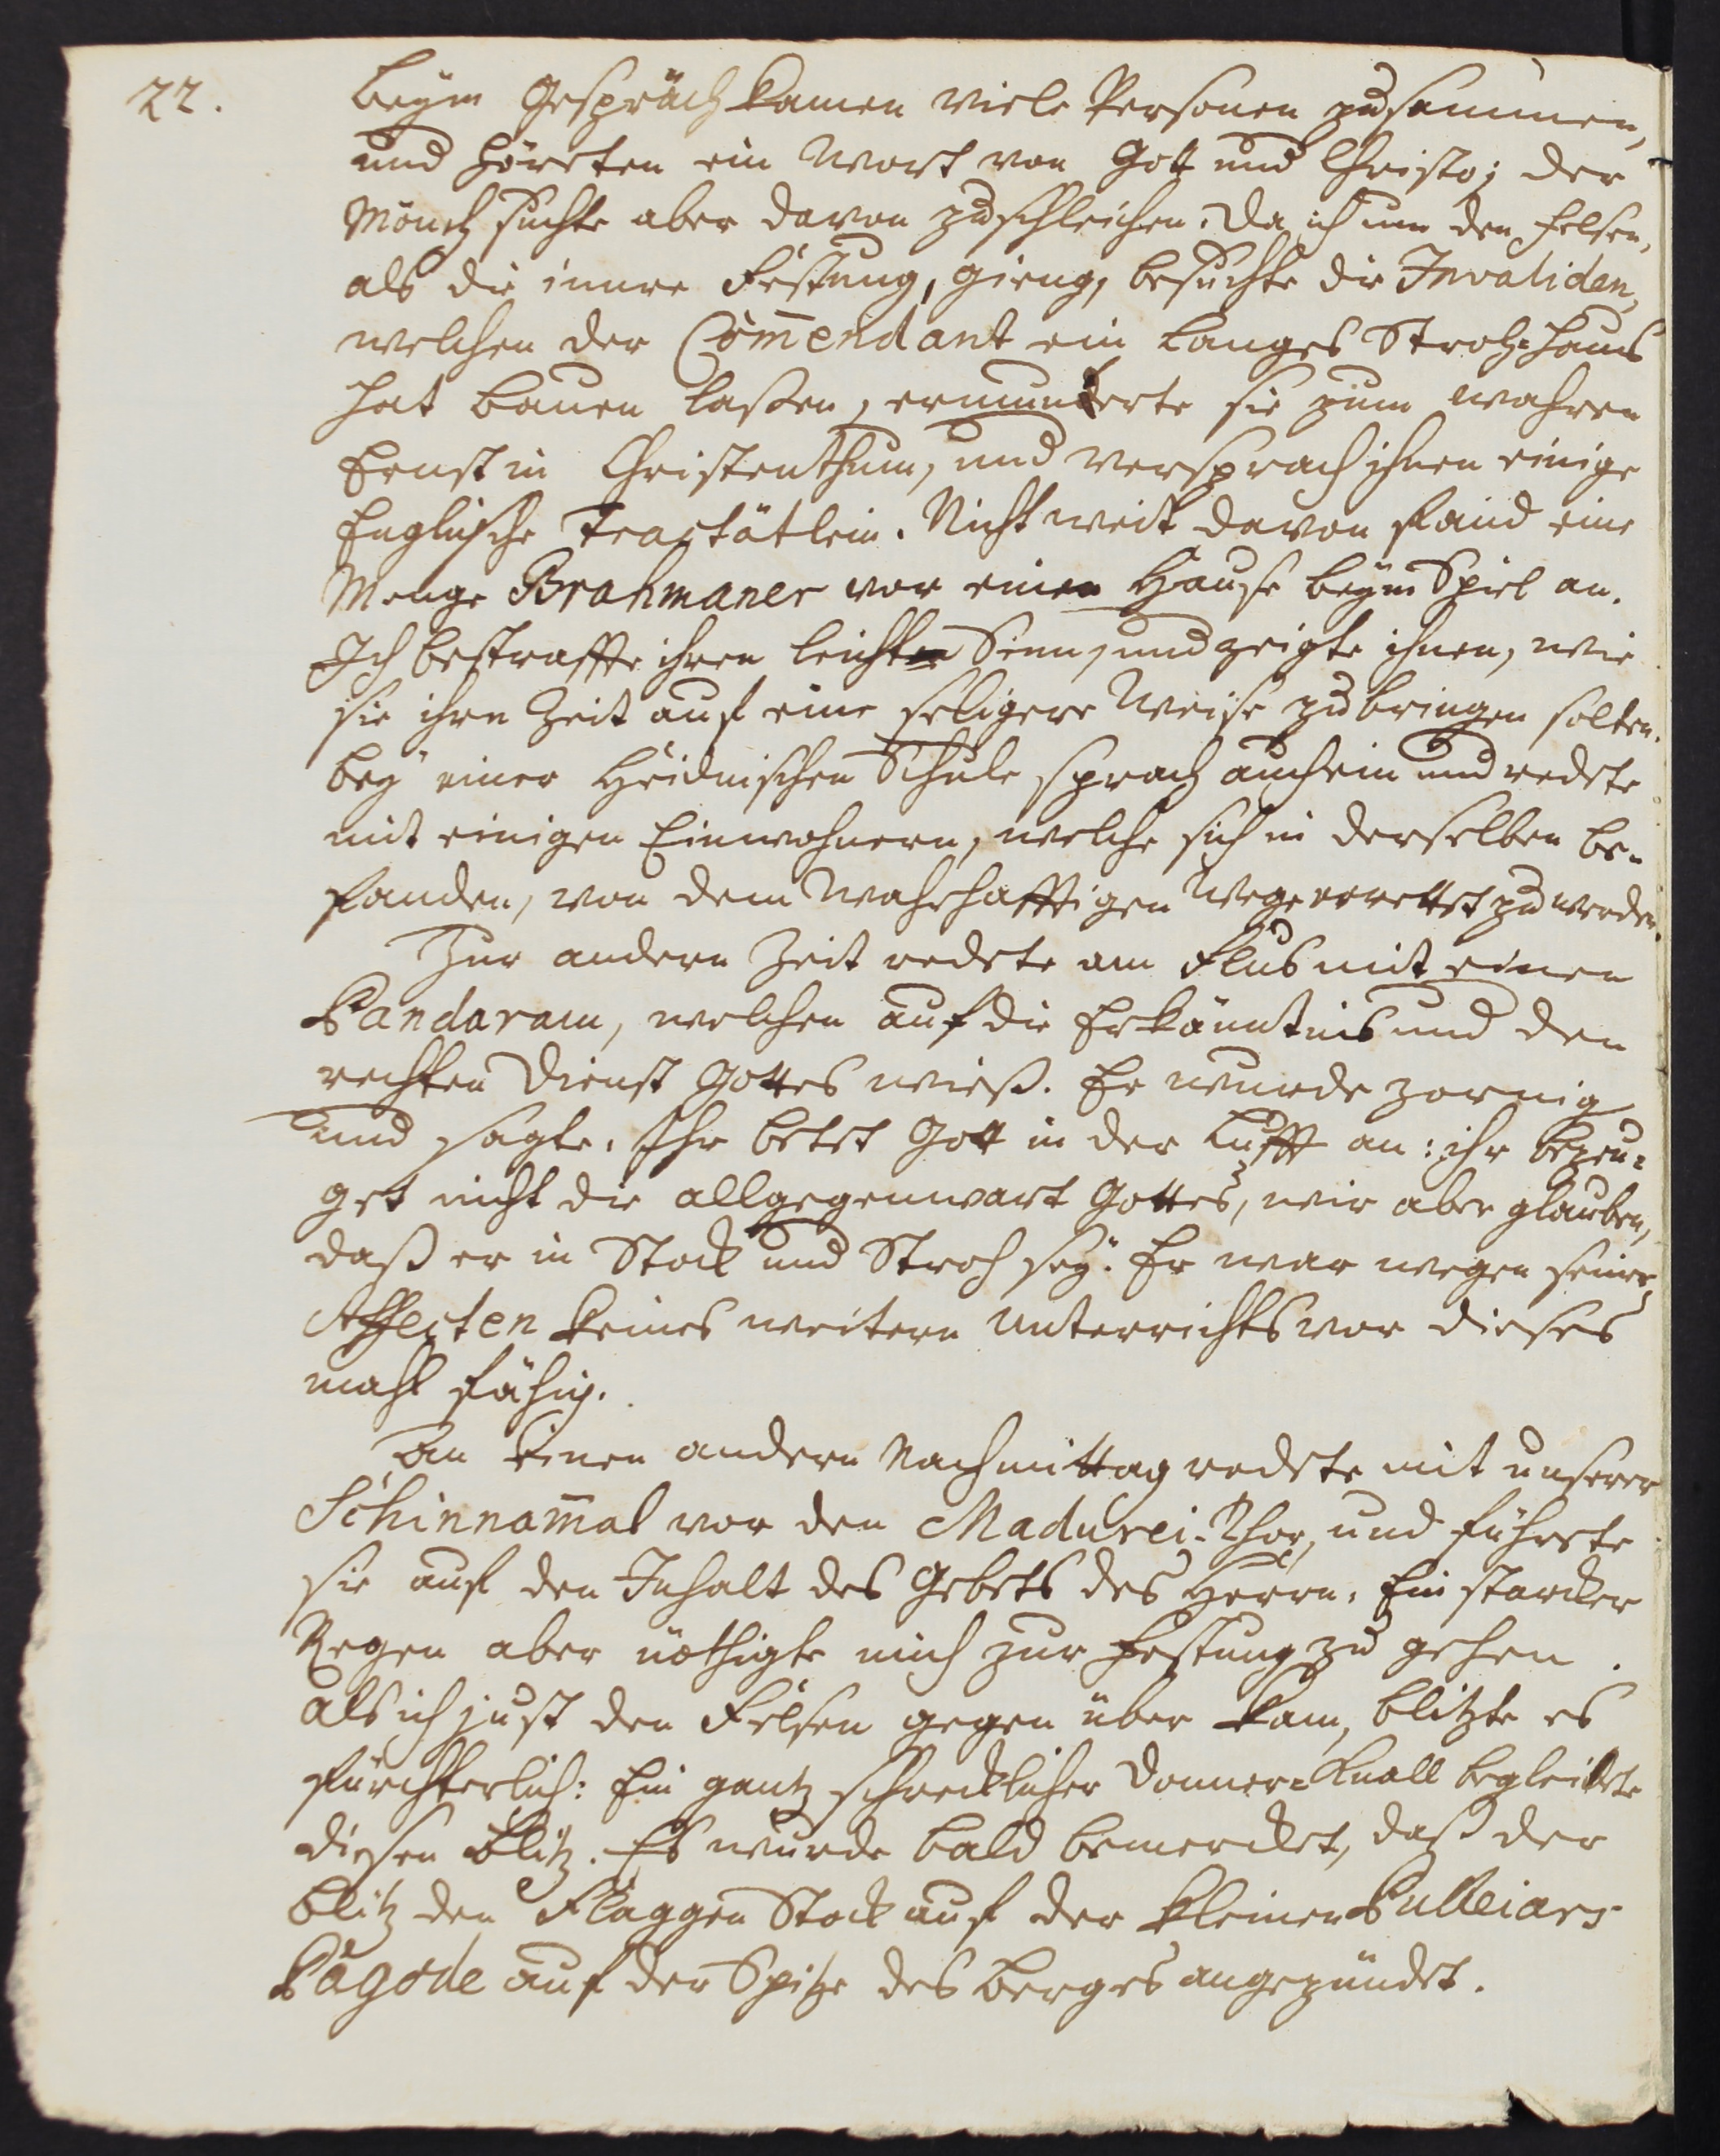 22.
Beÿm Gespräch kamen viele Personen zusammen,
und höreten ein Wort von Gott und Christo; der
Mönch suchte aber davon zuschleichen. Da ich um den Felsen,
als die innere Festung, gieng, besuchte die Invaliden,
welchen der Com̄endant ein langes Stroh-Haus
hat bauen laßen, ermunterte sie zum wahren
Ernst in Christenthum, und versprach ihnen einige
Englische Tractätlein. Nicht weit davon fand eine
Menge Brahmaner vor einen Hause beÿm Spiel an.
Ich bestraffte ihren leichten Sinn, und zeigte ihnen, wie
sie ihre Zeit auf eine seligere Weise zubringen solten.
beÿ einer Heidnischen Schule sprach auch ein und redete
mit einigen Einwohnern, welche sich in derselben be-
fanden, von dem wahrhafftigen Wege errettet zu werden.
Zur andern Zeit redete am Flus mit einen
Pandaram, welchen auf die Erkäntnis und den
rechten Dienst Gottes wieß. Er wurde zornig
und sagte: Ihr betet Gott in der Lufft an: ihr bezeu-
get nicht die allgegenwart Gottes, wir aber glauben,
daß er in Stock und Stroh seÿ. Er war wegen seiner
Affecten keines weitern Unterrichts vor dieses
mahl fähig.
An einen andern Nachmittag redete mit unserer
Schinnam̄al vor den Madurei-Thor, und führete
sie auf den Inhalt des Gebets des Herrn. Ein starcker
Regen aber nöthigte mich zur Festung zu gehen.
Als ich just den Felsen gegen über kam, blitzte es
fürchterlich: Ein gantz schrecklicher Donner-Knall begleitete
diesen Blitz. Es wurde bald bemercket, daß der
Blitz den Flaggen Stock auf der kleinen Pulleiars
Pagode auf der Spitze des Berges angezündet.